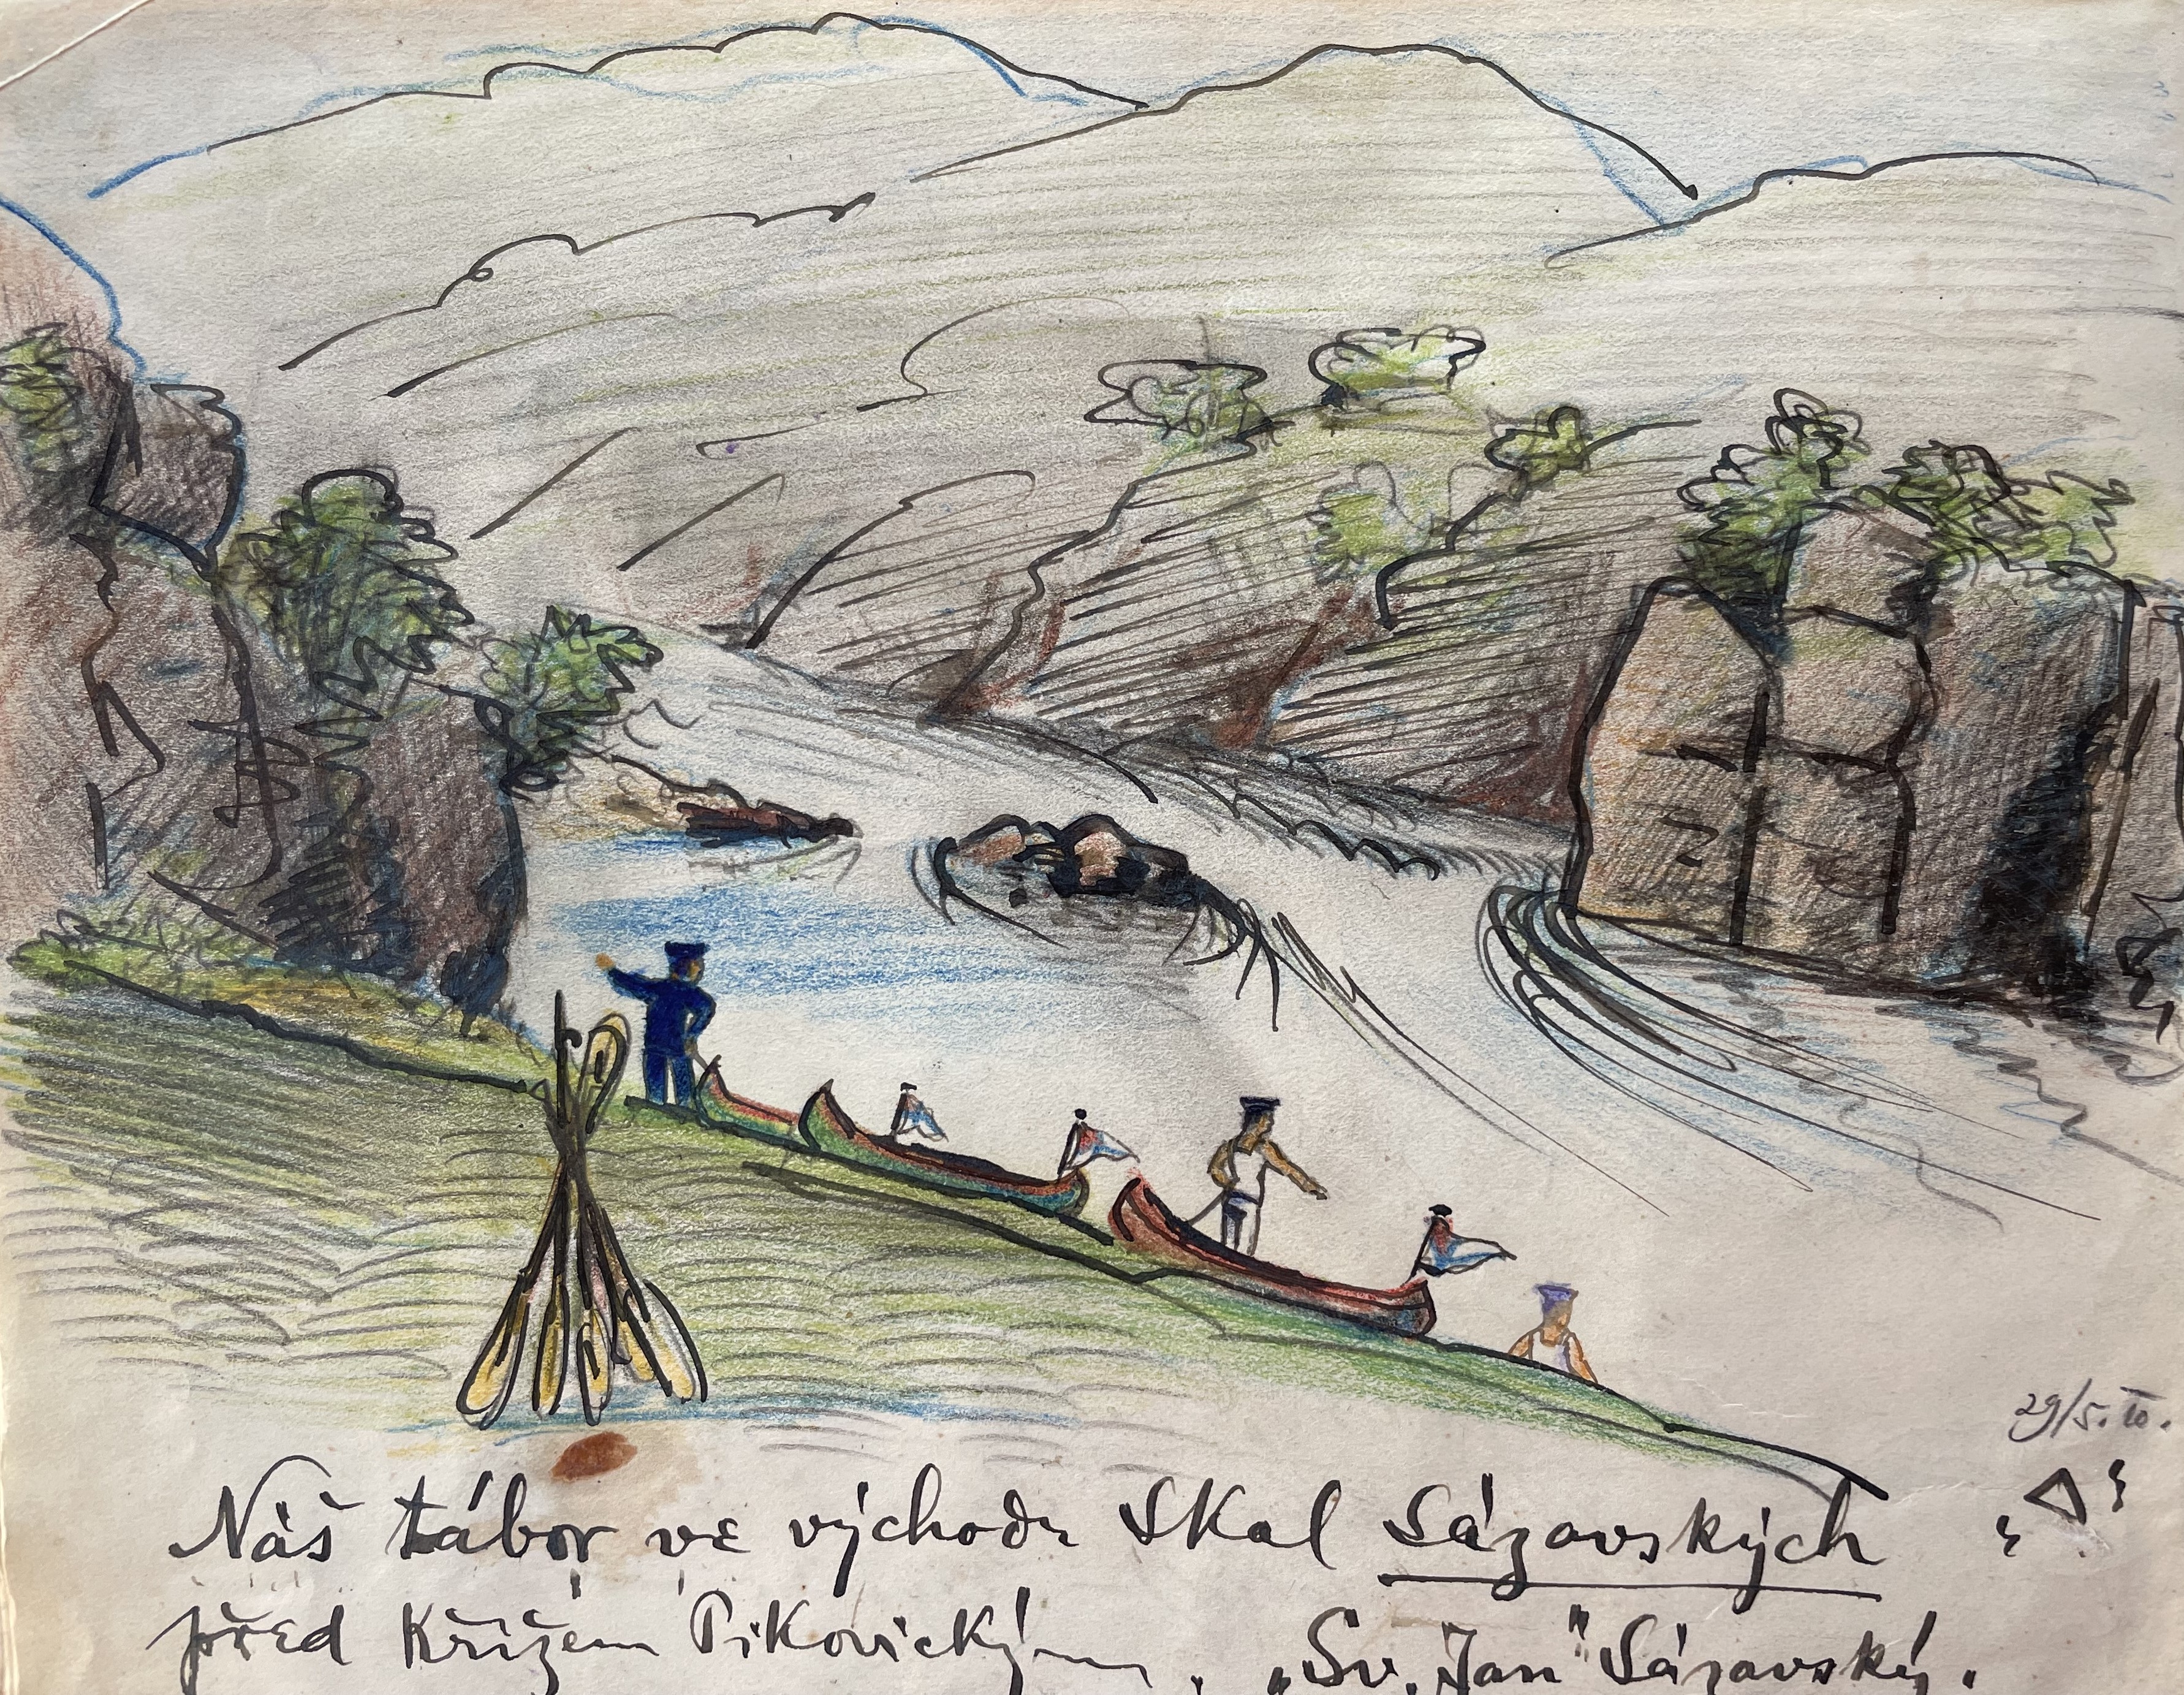 29/5. 10.
Náš tábor ve východu Skal Sázavských
před Křížem Pikovickým. „Sv. Jan" Sázavský.